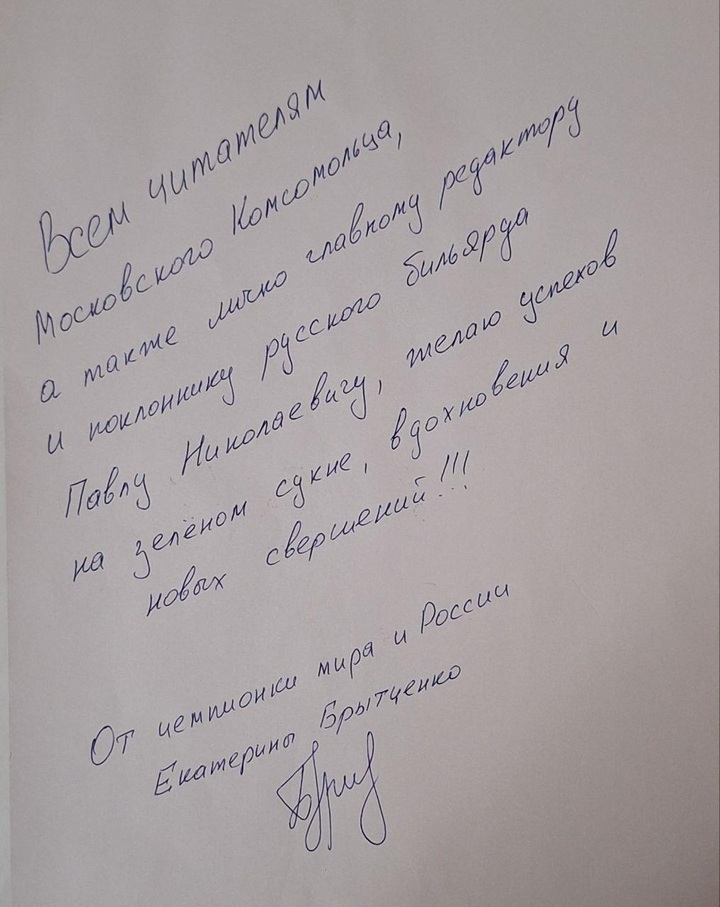 Всем читателям
Московского Комсомольца,
а также лично главному редактору
и поклоннику русского бильярда
Павлу Николаевичу, желаю успехов
на зелёном сукне, вдохновения и
новых свершений!!!
От чемпионки мира и России
Екатерины Брытченко